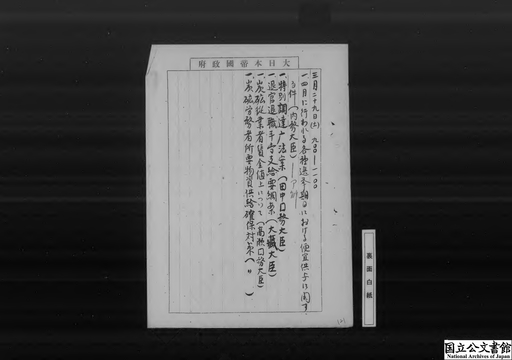 大日本帝國政府
三月二十九日(土) 九、三〇—一一、〇〇
一、四月に行われる各種選挙期日における便宜供与に関す
る件(内務大臣)
一、特別調達庁法案(田中国務大臣)
一、退官退職手当支給要綱案(大蔵大臣)
一、炭砿従業者賃金値上について(高瀬国務大臣)
一、炭砿労務者所要物資供給確保対策(〃)
裏面白紙
国立公文書館
National Archives of Japan